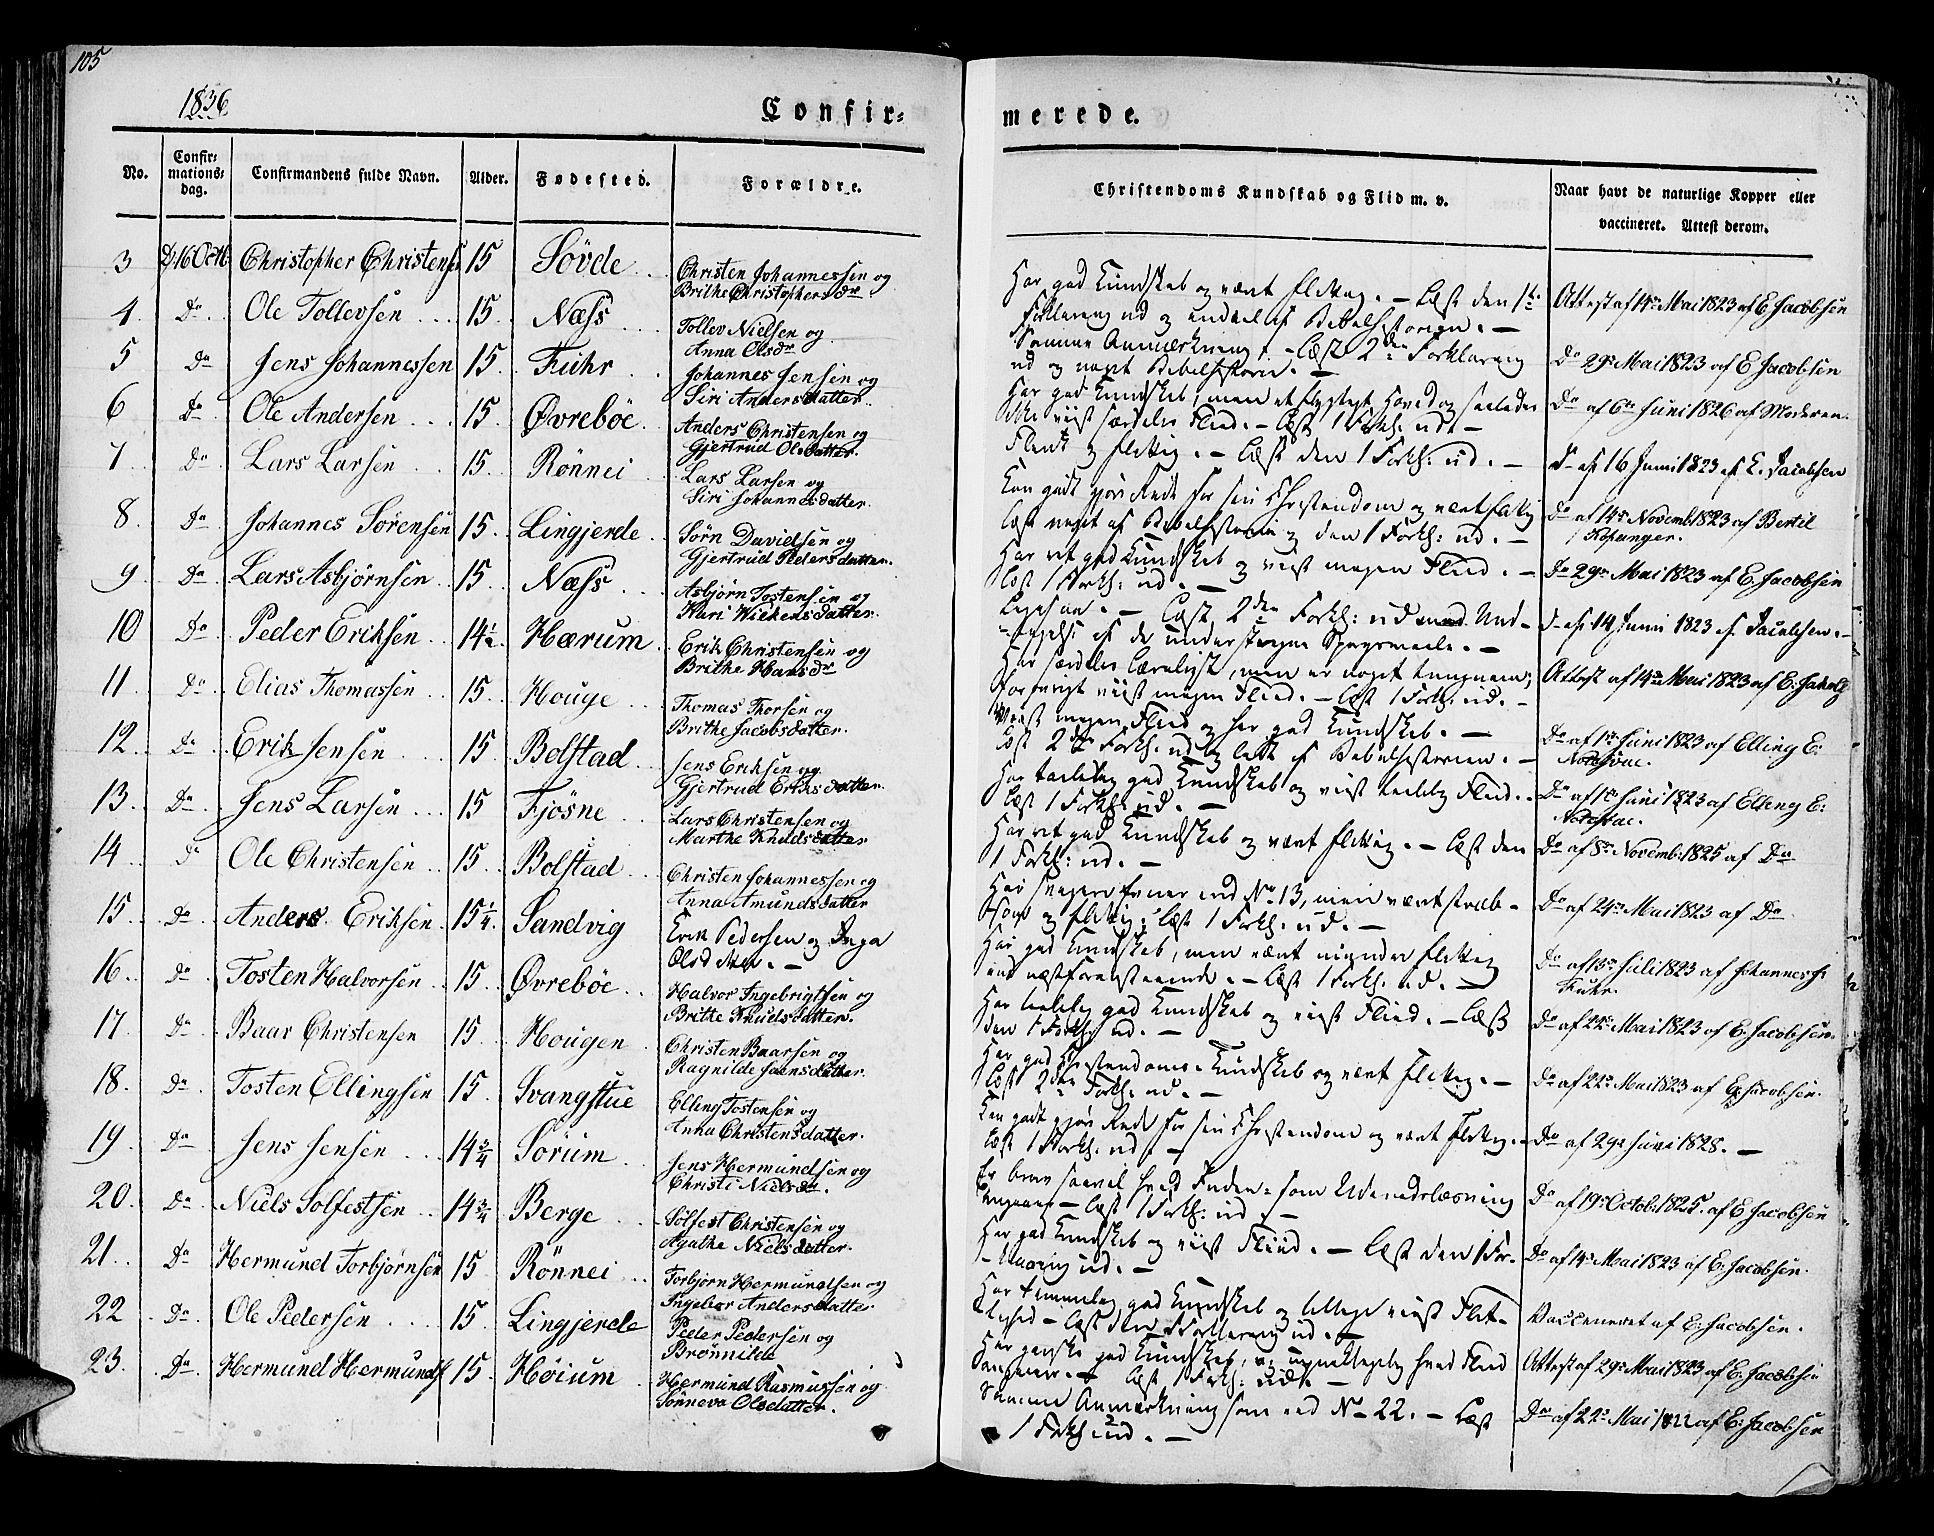 105
1836
Confir=
merede.
No.
Confir=
mations=
dag.
Confirmandens fulde Navn.
Alder.
Fødested.
Forældre.
Christendoms Kundskab og Flid m. v.
Naar havt de naturlige Kopper eller
vaccineret. Attest derom.
3 D. 16 Octb Christopher Christensen 15 Sövde
Christen Johannessen og
Brithe Christophersdr
Har god Kundskab og været flittig. – Læst den 1te
Forklaring ud og endeel af Bibelhistorien. –
Attest af 14de Mai 1823 af E. Jacobsen
4 Do Ole Tollevsen 15 Næss
Tollev Nielsen og
Anna Olsdr
Samme Anmærkning. – Læst 2den Forklaring
ud og noget Bibelhistorie. –
Do 29de Mai 1823 af E. Jacobsen
5 Do Jens Johannessen 15 Fuhr
Johannes Jensen og
Siri Andersdatter
Har god Kundskab, men et flygtigt Hoved og saaledes
ikke viist særdeles Flid. – Læst 1 Forkl: ud. –
Do af 6te Juni 1826 af Moderen.
6 Do Ole Andersen 15 Øvrebøe
Anders Christensen og
Gjertrud Olsdatter.
Flink og flittig. – Læst den 1 Forkl: ud. –
Do af 16 Juni 1823 af E. Jacobsen
7 Do Lars Larsen 15 Rönnei
Lars Larsen og
Siri Johannesdatter.
Kan godt gjøre Rede for sin Christendom og været flittig
læst noget af Bibelhistorien og den 1 Forkl: ud. –
Do af 14de Novemb: 1823 af Bertil
Kopanger.
8 Do Johannes Sørensen 15 Lingjerde
Sørn Davidsen og
Gjertrud Pedersdatter.
Har ret god Kundskab og viist megen Flid. –
læst 1 Forkl: ud. –
Do 29de Mai 1823 af E. Jacobsen
9 Do Lars Asbjørnsen 15 Næss
Asbjørn Tostensen og
Kari Wichensdatter.
Ligesaa. – Læst 2den Forkl: ud med Und-
tagelse af de understregne Spørgsmaale. –
Do af 14 Juni 1823 af Jacobsen. –
10 Do Peder Eriksen 14½ Hærum
Erik Christensen og
Brithe Hansdr
Har særdeles Lærelyst, men er noget tungnem;
forøvrigt viist megen Flid. – Læst 1 Forkl: ud. –
Attest af 14de Mai 1823 af E: Jakobs
11 Do Elias Thomassen 15 Houge
Thomas Thorsen og
Brithe Jacobsdatter.
Viist megen Flid og har god Kundskab. –
Læst 2den Forkl: ud og lidt af Bibelhistorien. –
Do af 1ste Juni 1823 af Elling E:
12 Do Erik Jensen 15 Bolstad
Jens Eriksen og
Gjertrud Eriksdatter.
Har taalelig god Kundskab og viist taalelig Flid. –
Læst 1 Forkl: ud. –
Do af 1ste Juni 1823 af Elling E:
13 Do Jens Larsen 15 Fjøsne
Lars Christensen og
Marthe Knudsdatter
Har ret god Kundskab og været flittig. – Læst den
1 Forkl: ud. –
Do af 8de Novemb: 1825 af Do
14 Do Ole Christensen 15 Bolstad
Christen Johannessen og
Anna Amundsdatter
Har svagere Evner end No 13, men været stræb-
som og flittig; læst 1 Forkl: ud. –
Do af 24de Mai 1823 af Do.
15 Do Anders Eriksen 15¼ Sandvig
Erik Pedersen og Inga
Olsdatter. –
Har god Kundskab, men været mindre flittig
end næstforestaaende. – Læst 1 Forkl: ud. –
Do af 13de Juli 1823 af Johannes J:
Fuhr.
16 Do Tosten Halvorsen 15 Øvrebøe
Halvor Ingebrigtsen og
Brithe Knudsdatter.
Har taalelig god Kundskab og viist Flid. – Læst
den 1 Forkl: ud. –
Do af 22de Mai 1823 af E: Jacobsen.
17 Do Baar Christensen 15 Hougen
Christen Baarsen og
Ragnilde Jaensdatter.
Har god Christendoms-Kundskab og været flittig. –
læst 2den Forkl: ud. –
Do af 22de Mai 1823 af E: Jacobsen.
18 Do Tosten Ellingsen 15 Svangstue
Elling Tostensen og
Anna Christensdatter.
Kan godt gjøre Rede for sin Christendom og været flittig. –
læst 1 Forkl: ud. –
Do af 29de Juni 1828. –
19 Do Jens Jensen 14¾ Sorum
Jens Hermundsen og
Christi Nielsdr.
Er brav saavel hvad Inden- som Udenadslæsning
angaaer – læst 1 Forkl: ud. –
Do af 19de Octob: 1825. af E. Jacobsen
20 Do Niels Solfestsen 14¾ Berge
Sølfest Christensen og
Agathe Nielsdatter.
Har god Kundskab og viist Fliid. – Læst den 1 For-
klaring ud. –
Do af 14de Mai 1823 af E: Jacobsen.
21 Do Hermund Torbjørnsen 15 Rönnei
Torbjørn Hermundsen og
Ingebor Andersdatter
Har temmelig god Kundskab og tillige viist Flit-
tighed – Læst den 1 Forklaring ud. –
Vaccineret af E: Jacobsen.
22 Do Ole Pedersen 15 Lingjerde
Peder Pedersen og
Brönnilde
Har ganske god Kundskab, og upaaklagelig hvad Fliid
angaaer. – Læst 1 Forkl: ud. –
Attest af 29de Mai 1823 af E. Jacobsen
23 Do Hermund Hermunds 15 Høium
Hermund Rasmussen og
Sönneva Olsdatter.
Samme Anmærkning som ved No 22. – Læst
1 Forkl: ud. –
Do af 22de Mai 1822 af E: Jacobsen